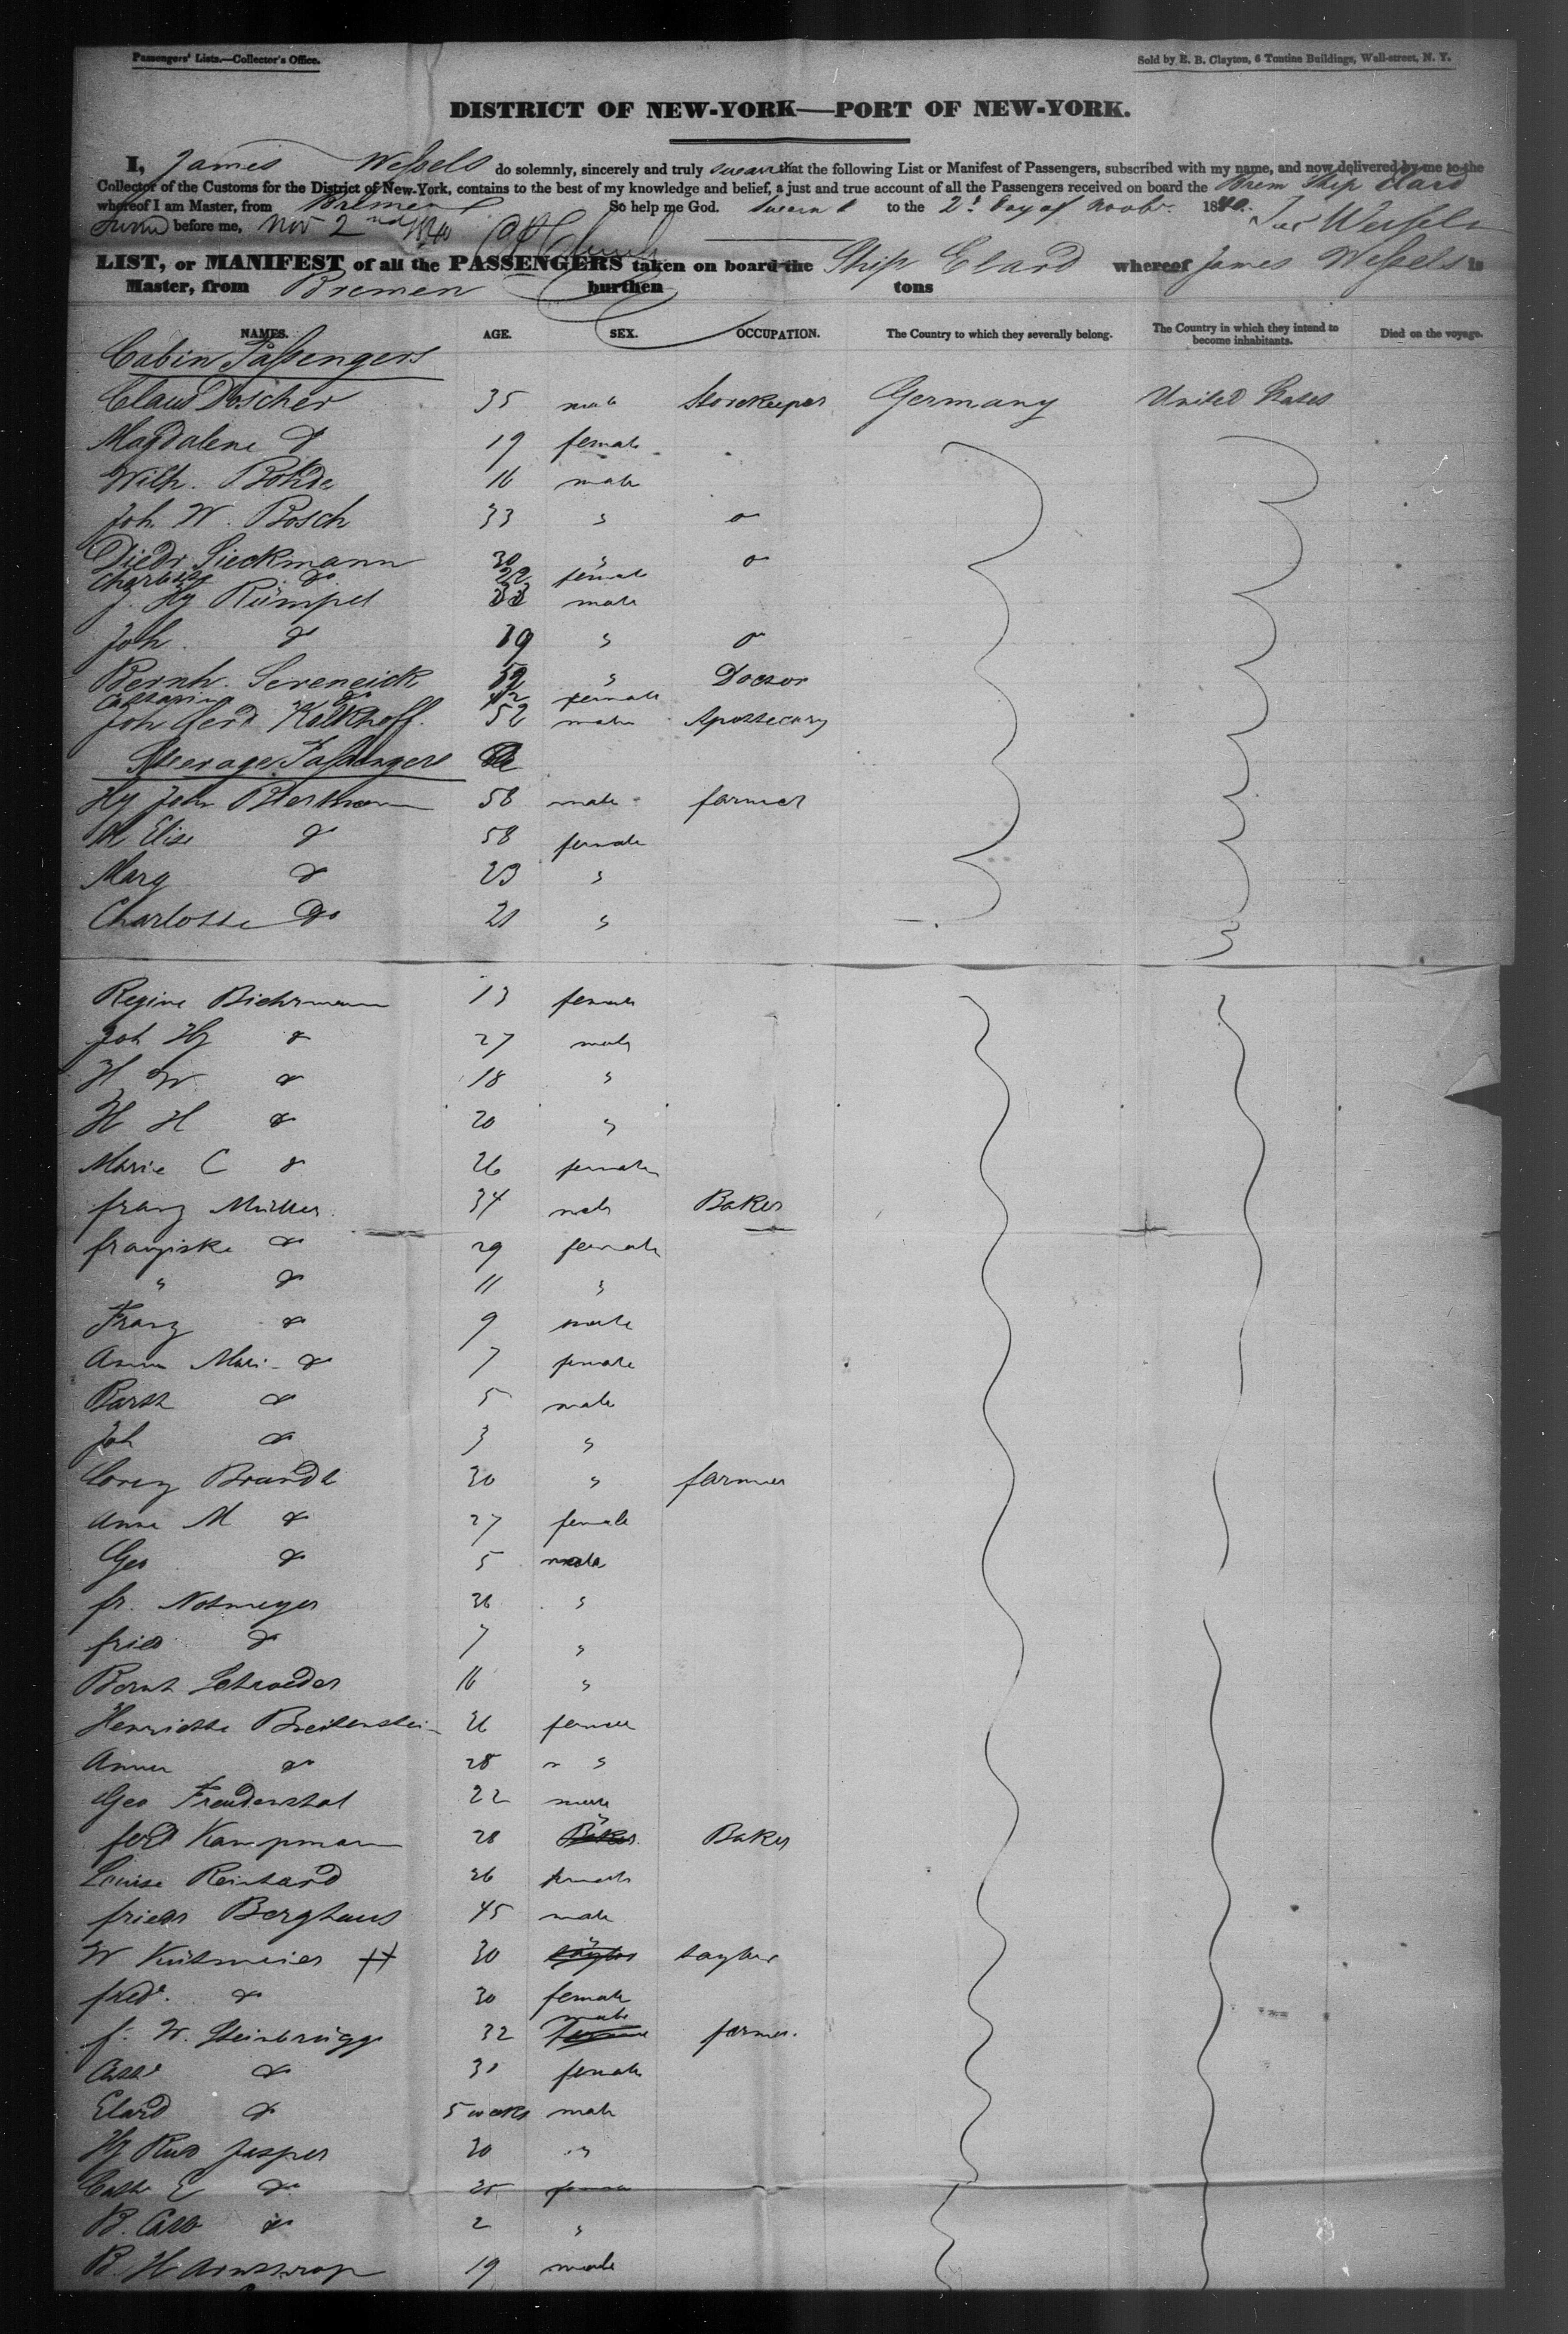 Passengers' Lists.—Collector's Office.
Sold by E. B. Clayton, 6 Tontine Buildings, Wall-street, N. Y.
DISTRICT OF NEW-YORK—PORT OF NEW-YORK.
I, James Wessels do solemnly, sincerely and truly swear that the following List or Manifest of Passengers, subscribed with my name, and now delivered by me to the
Collector of the Customs for the District of New-York, contains to the best of my knowledge and belief, a just and true account of all the Passengers received on board the Brem Ship Elard
whereof I am Master, from Bremen So help me God. to the 2d Day of Novbr. 1840. Jas Wessels
before me, Nov 2nd 1840
LIST, or MANIFEST of all the PASSENGERS taken on board the Ship Elard whereof James Wessels is
Master, from Bremen burthen tons
NAMES. AGE. SEX. OCCUPATION. The Country to which they severally belong. The Country in which they intend to become inhabitants. Died on the voyage.
Cabin Passengers
Claus Doscher 35 male Storekeeper Germany United States
Magdalene do 19 female
Wilh. Bohde 16 male
Joh. W. Bosch 33 " o
Diedr Sieckmann 30 " o
Charlotte do 22 female
J. Hy Rümpel 33 male
Joh. do 19 " o
Bernh. " Doctor
do 42 female
Joh Gerd Kalkhoff. 52 male Apothecary
Steerage Passengers
Hy John 58 male farmer
M Elise do 58 female
Marg do 23 "
Charlotte Do 21 "
Regine Biehrmann 13 female
Joh Hy do 27 male
H W do 18 "
H H do 20 "
Marie C do 26 female
franz Müller 34 male Baker
franziske do 29 female
" do 11 "
Franz do 9 male
Anna Mari do 7 female
Barth do 5 male
Joh do 3 "
Lorenz Brandt 30 " farmer
Anna M do 27 female
Geo do 5 male
fr. Notmeyer 36 "
fried do 7 "
Bernt Schroeder 16 "
Henriette Breitenstein 26 female
Anna do 28 "
Geo Freudenthal 22 male
ferd Kampmann 28 " Baker
Louise Reinhard 26 female
friedr Berghaus 45 male
W Kütmeier 30 " taylor
fred. do 30 female
f. W. Steinbrügge 32 male farmer.
Cath do 31 female
Elard do 5 weeks male
Hy Rud Jasper 30 "
Cath E do 25 female
B. Cath do 2 "
B. H 19 male